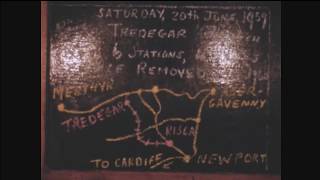 SATURDAY, 20th JUNE 1959
TREDEGAR
& STATIONS,
BE REMOVED
MERTHYR
GAVENNY
TREDEGAR
RISCA
TO CARDIFF
NEWPORT